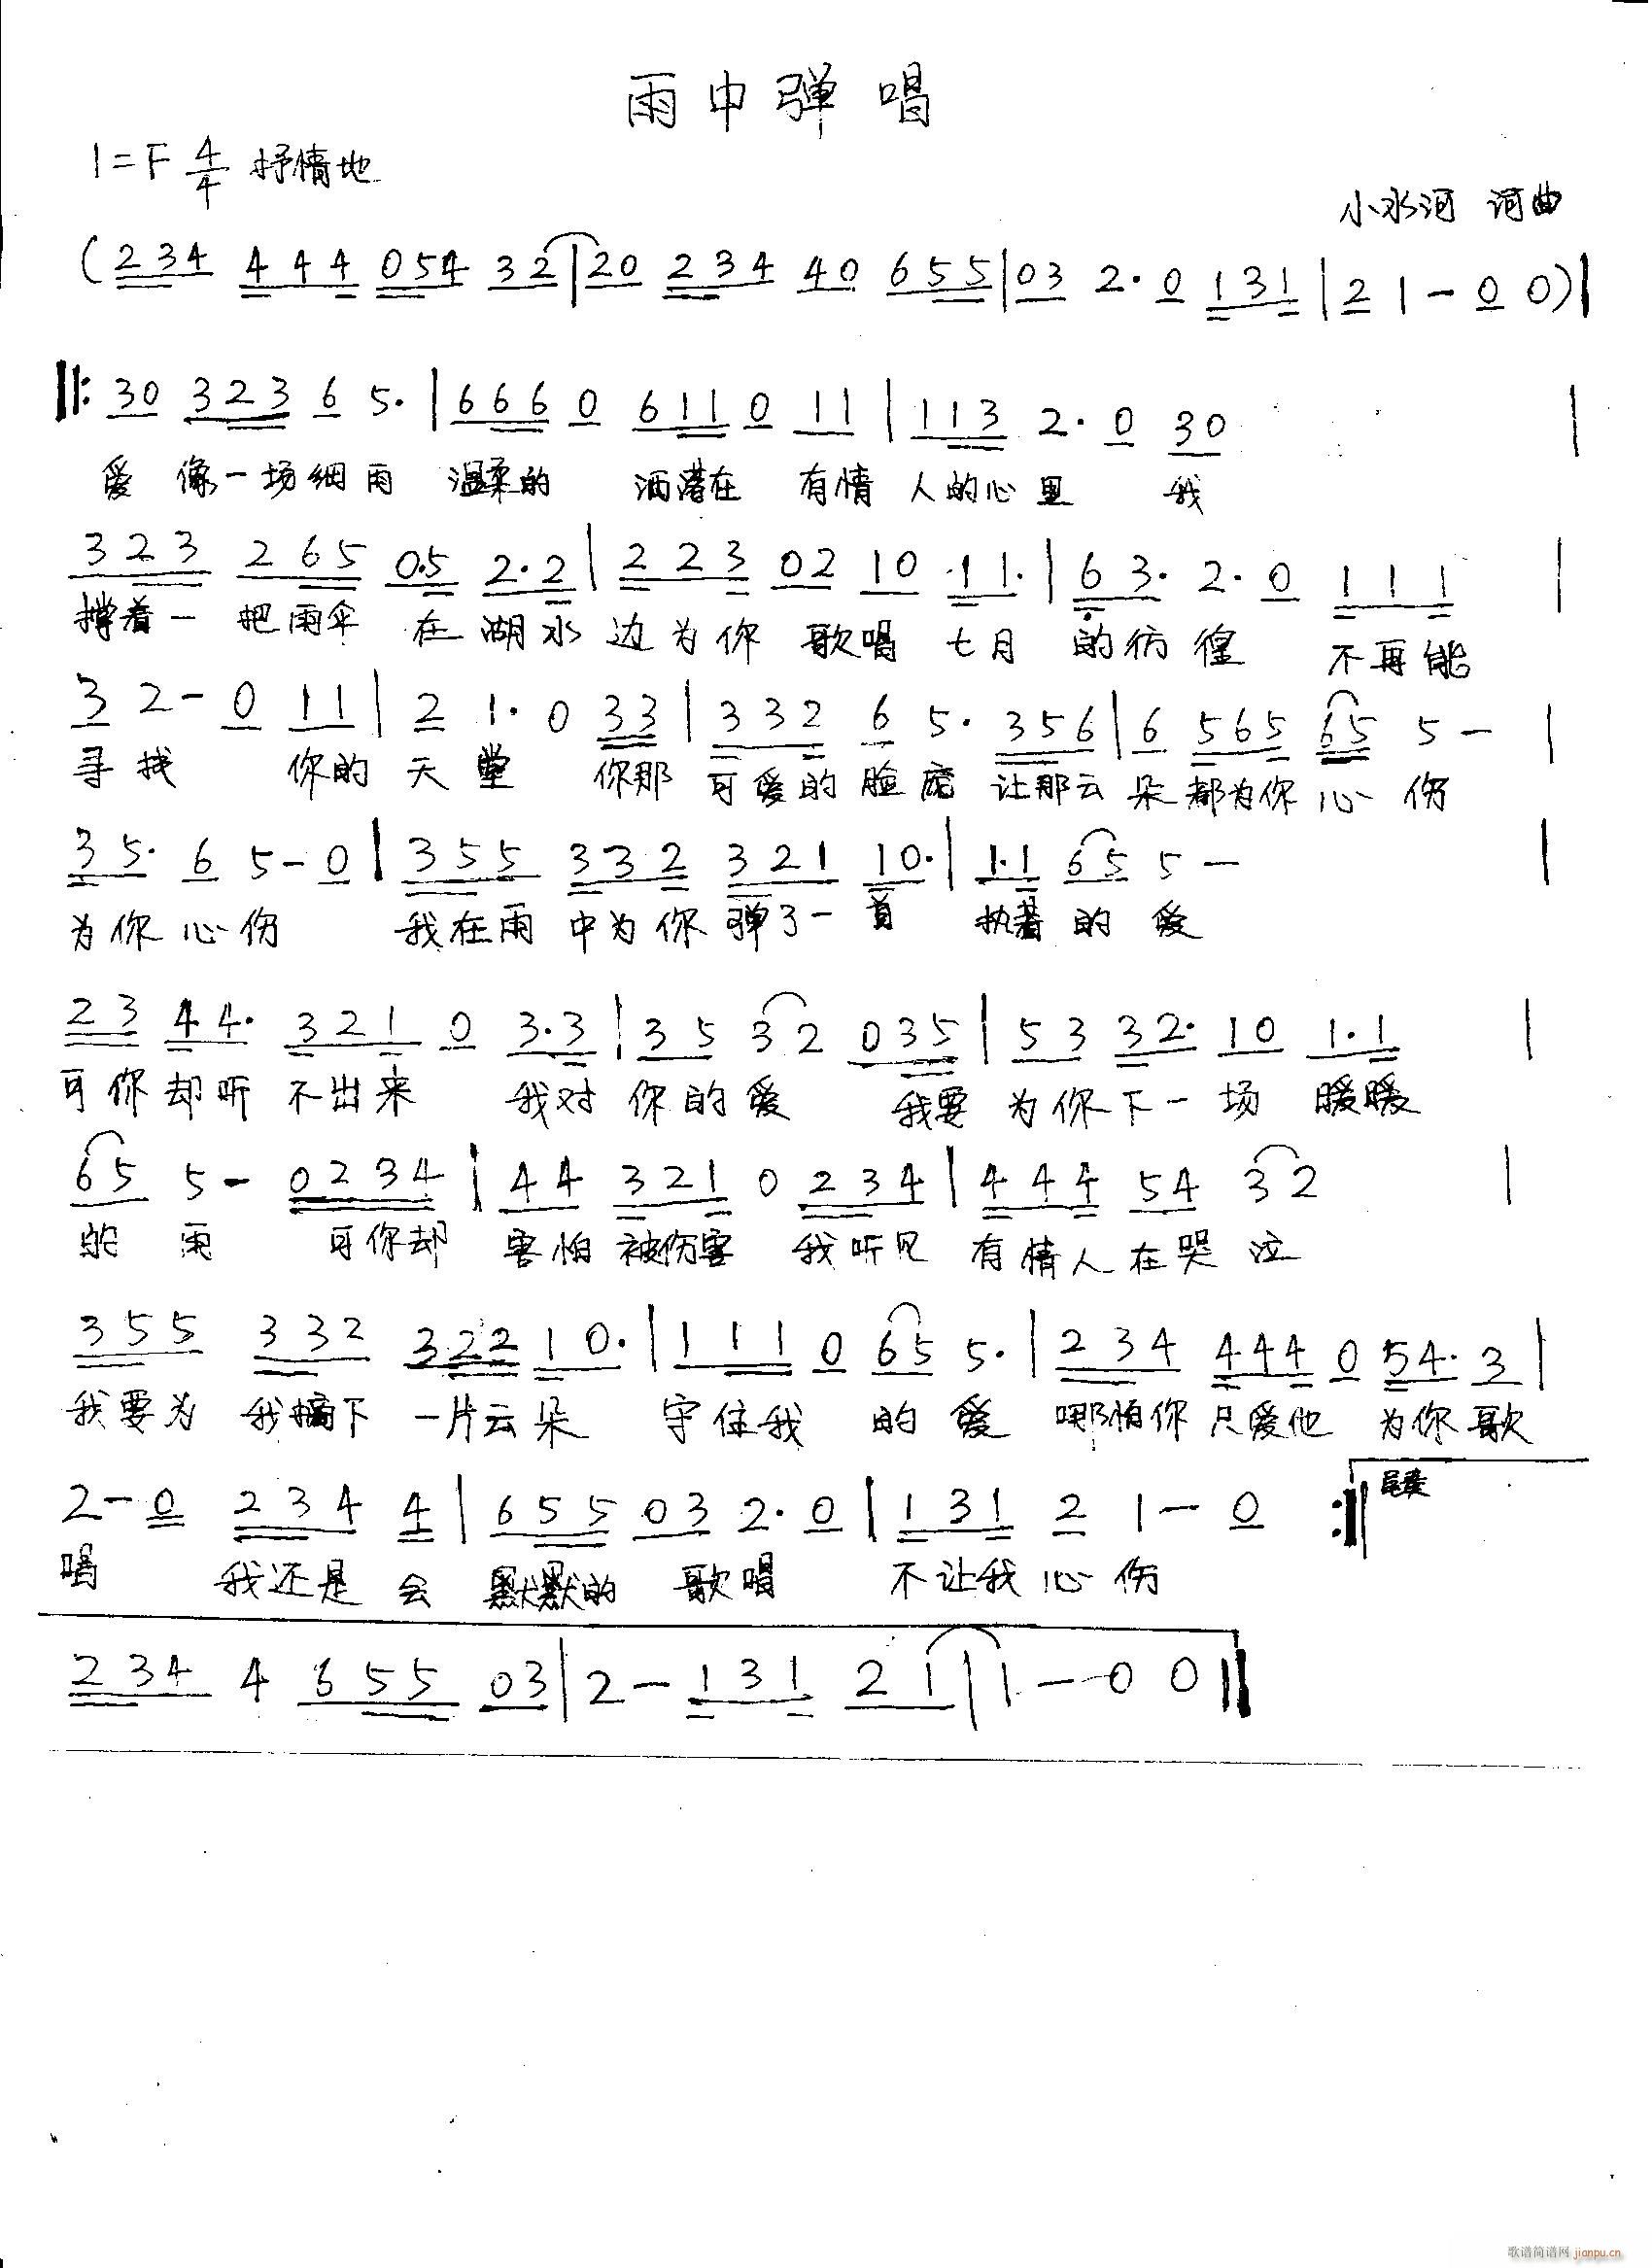 雨中弹唱
1=F 4/4 抒情地
小水河 词曲
(234 444 054 32|20 234 40 655|03 2·0 131|2 1-0 0)|
‖:30 323 6 5·|666 0 611 0 11|113 2·0 30 |
爱 像一场细雨 温柔的 洒落在 有情人的心里 我
323 265 0·5 2·2|223 02 10 ·11·|63· 2·0 111 |
撑着一 把雨伞 在湖水边为你 歌唱 七月 的彷徨 不再能
3 2-0 11|2 1·0 33|332 6 5· 356|6 565 65 5- |
寻找 你的天堂 你那 可爱的脸庞 让那云朵都为你心伤
35· 6 5-0|355 332 321 10·|1·1 65 5- |
为你心伤 我在雨中为你弹了一首 执着的爱
23 44· 321 0 3·3|35 32 035|53 32· 10 1·1 |
可你却听不出来 我对你的爱 我要为你下一场 暖暖
65 5- 0234|44 321 0 234|444 54 32 |
的雨 可你却 害怕被伤害 我听见 有情人在哭泣
355 332 322 10·|111 0 65 5·|234 444 0 54· 3|
我要为 我摘下 一片云朵 守住我 的爱 哪怕你只爱他 为你歌
2-0 234 4|655 03 2·0|131 2 1-0 :‖ 尾奏
唱 我还是会 默默的 歌唱 不让我心伤
234 4 655 03|2-131 21|1-0 0‖
歌谱简谱网 jianpu.cn